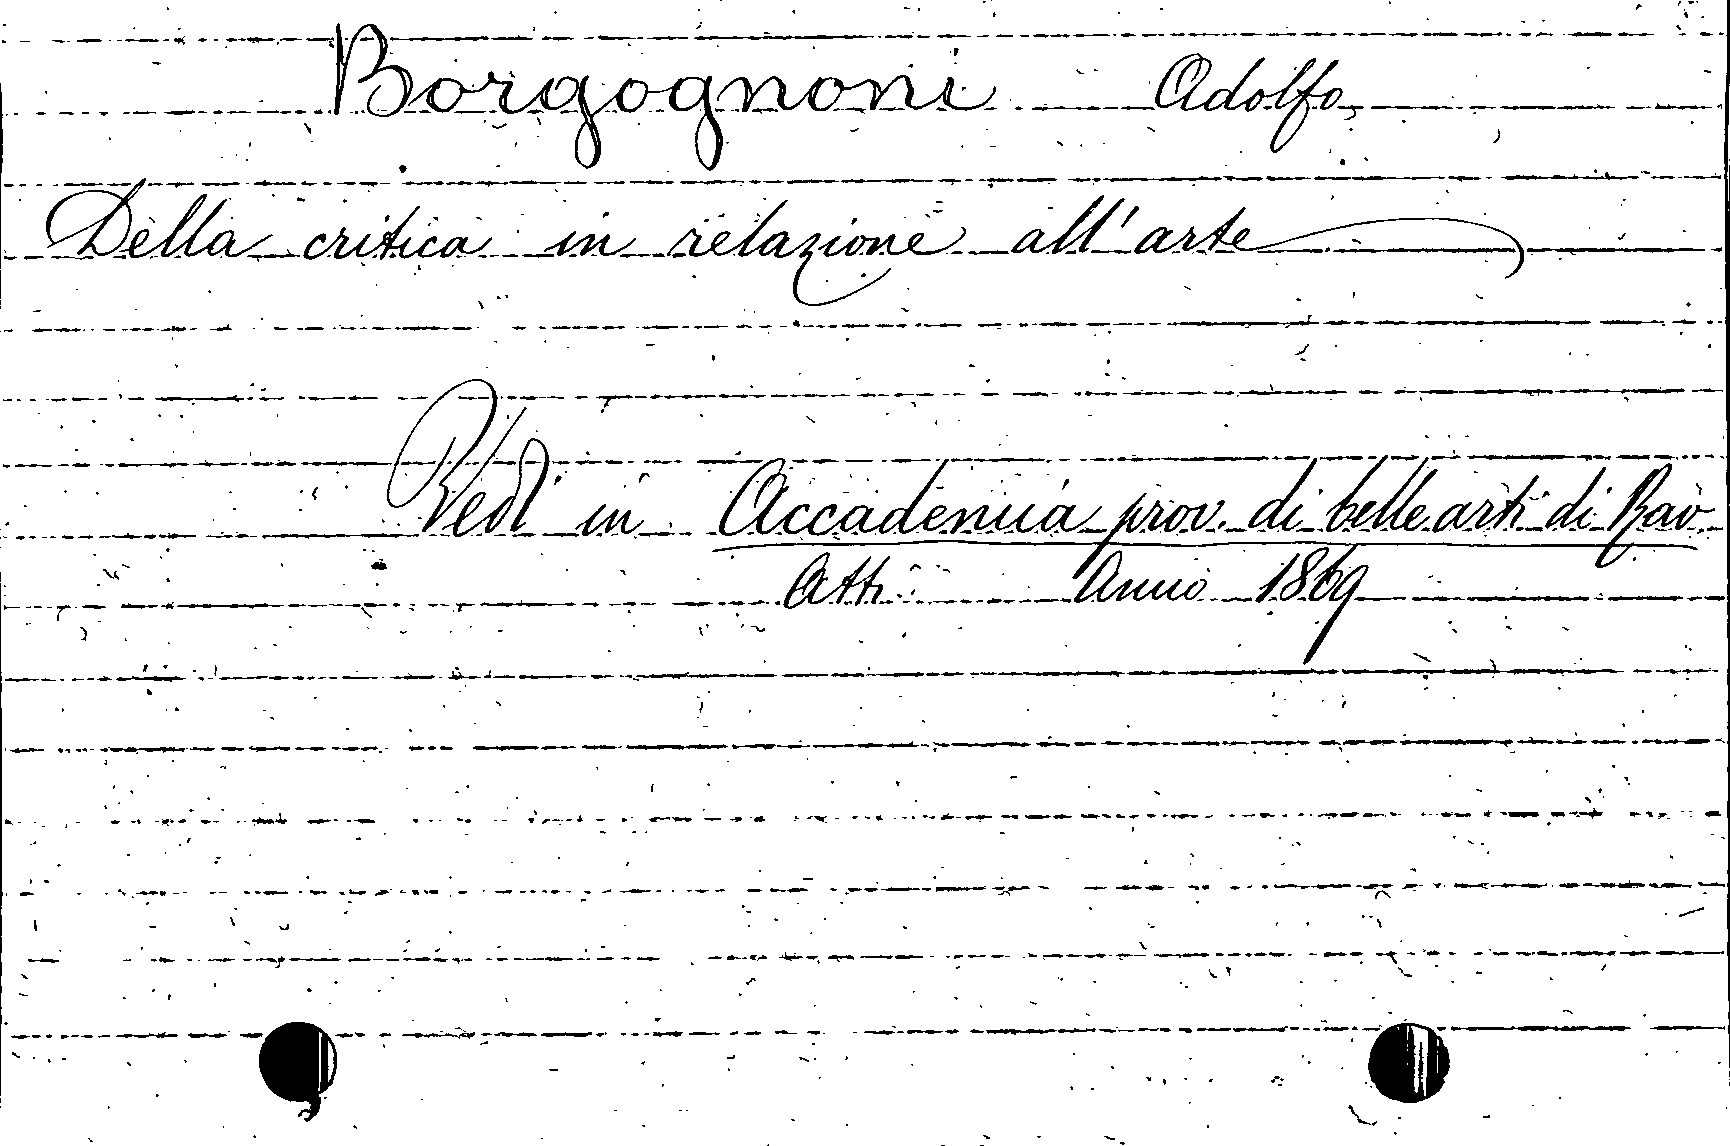 Borgognoni Adolfo
Della critica in relazione all'arte
Vedi in Accademia prov. di belle arti di Rav.
Atti Anno 1869